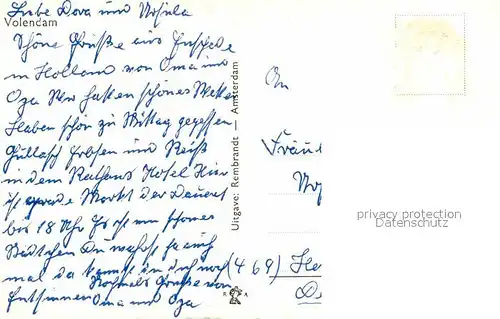 Liebe Dora und Ursula
Volendam
Schöne Grüße aus Enschede
in Holland von Oma und
Opa Wir hatten schönes Wetter
Haben schön zu Mittag gegessen
Gullasch Erbsen und Reis
in dem Hotel Hier
ist gerade Markt der Dauert
bis 18 Uhr Es ist ein schönes
Städtchen Du warst ja auch
mal da kannst du dich noch
entsinnen Nochmals Grüße von
Oma und Opa
Uitgave: Rembrandt — Amsterdam
An
Fräu
(469) He
privacy protection
Datenschutz